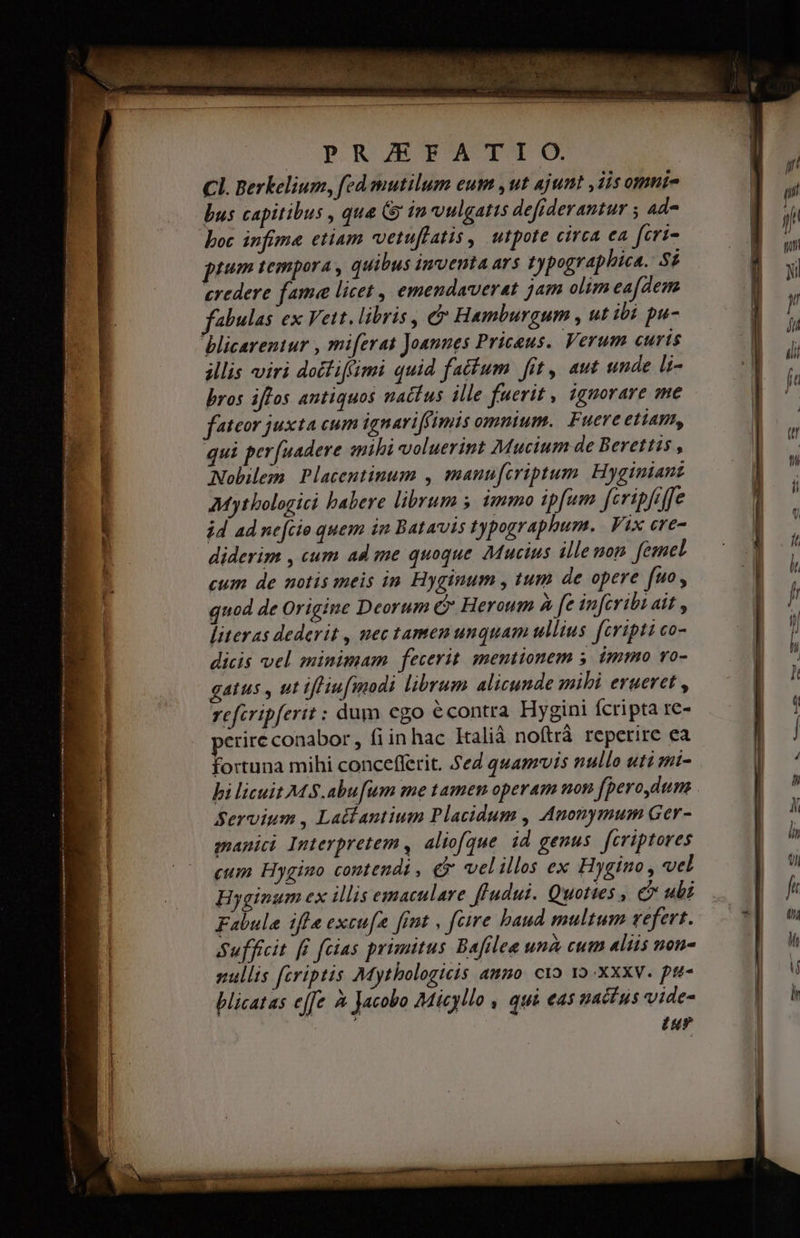 PRÆFATIO.
Cl. Berkelium, ſed mutilum eum, ut ajunt, iis omni-
bus capitibus, quæ & in vulgatis deſiderantur; ad-
hoc infimæ etiam vetuſtatis, utpote circa ea ſcri-
ptum tempora, quibus inventa ars typographica. Si
credere famæ licet, emendaverat jam olim eaſdem
fabulas ex Vett. libris, & Hamburgum, ut ibi pu-
blicarentur, miſerat Joannes Pricæus. Verum curis
illis viri doctiſſimi quid factum ſit, aut unde li-
bros iſtos antiquos nactus ille fuerit, ignorare me
fateor juxta cum ignariſſimis omnium. Fuere etiam,
qui perſuadere mihi voluerint Mucium de Berettis,
Nobilem Placentinum, manuſcriptum Hyginiani
Mythologici habere librum; immo ipſum ſcripſiſſe
id ad neſcio quem in Batavis typographum. Vix cre-
diderim, cum ad me quoque Mucius ille non ſemel
cum de notis meis in Hyginum, tum de opere ſuo,
quod de Origine Deorum & Heroum à ſe inſcribi ait,
literas dederit, nec tamen unquam ullius ſcripti co-
dicis vel minimam fecerit mentionem; immo ro-
gatus, ut iſtiuſmodi librum alicunde mihi erueret,
reſcripſerit: dum ego ècontra Hygini ſcripta re-
perire conabor, ſi in hac Italiâ noſtrâ reperire ea
fortuna mihi conceſſerit. Sed quamvis nullo uti mi-
hi licuit MS. abuſum me tamen operam non ſpero, dum
Servium, Lactantium Placidum, Anonymum Ger-
manici Interpretem, alioſque id genus ſcriptores
cum Hygino contendi, & vel illos ex Hygino, vel
Hyginum ex illis emaculare ſtudui. Quoties, & ubi
Fabulæ iſtæ excuſæ ſint, ſcire haud multum refert.
Sufficit ſi ſcias primitus Baſileæ unà cum aliis non-
nullis ſcriptis Mythologicis anno CIↃ IↃ XXXV. pu-
blicatas eſſe à Jacobo Micyllo, qui eas nactus vide-
tur